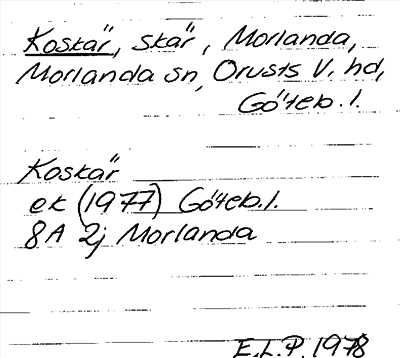 Koskär, skär, Morlanda,
Morlanda sn, Orusts V. hd,
Göteb. l.
Koskär
ek (1977) Göteb. l.
8A 2j Morlanda
E.L.P. 1978